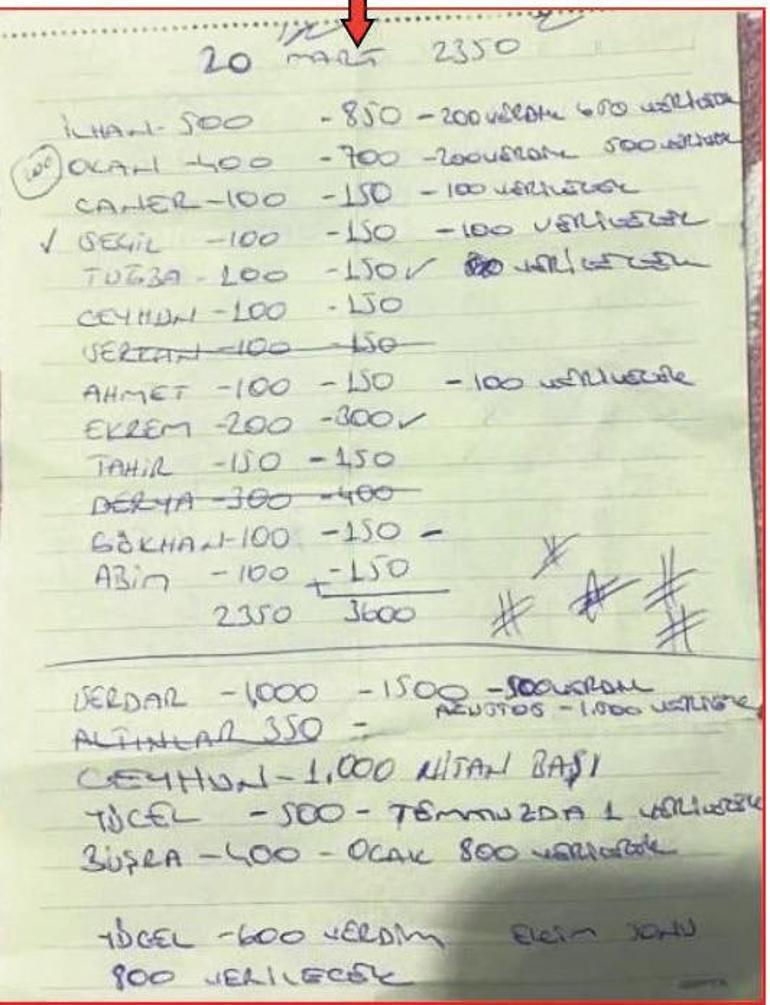 20 MART 2350
İLHAN - 500 - 850 - 200 VERDİM 650 VERİLECEK
OKAN - 400 - 700 - 200 VERDİM 500 VERİLECEK
CANER - 100 - 150 - 100 VERİLECEK
✓ SEÇİL - 100 - 150 - 100 VERİLECEK
TUĞBA - 100 - 150 ✓ VERİLECEK
CEYHUN - 100 - 150
SERKAN - 100 - 150
AHMET - 100 - 150 - 100 VERİLECEK
EKREM - 200 - 300 ✓
TAHİR - 150 - 150
DERYA - 300 - 400
GÖKHAN - 100 - 150 -
ABİM - 100 + - 150
2350 3600
SERDAR - 1,000 - 1500 - 500 VERDİM
AĞUSTOS - 1.000 VERİLECEK
ALTINLAR 350 -
CEYHUN - 1.000 NİSAN BAŞI
YÜCEL - 500 - TEMMUZDA 1 VERİLECEK
BÜŞRA - 400 - OCAK 800 VERİLECEK
YÜCEL - 600 VERDİM EKİM SONU
800 VERİLECEK